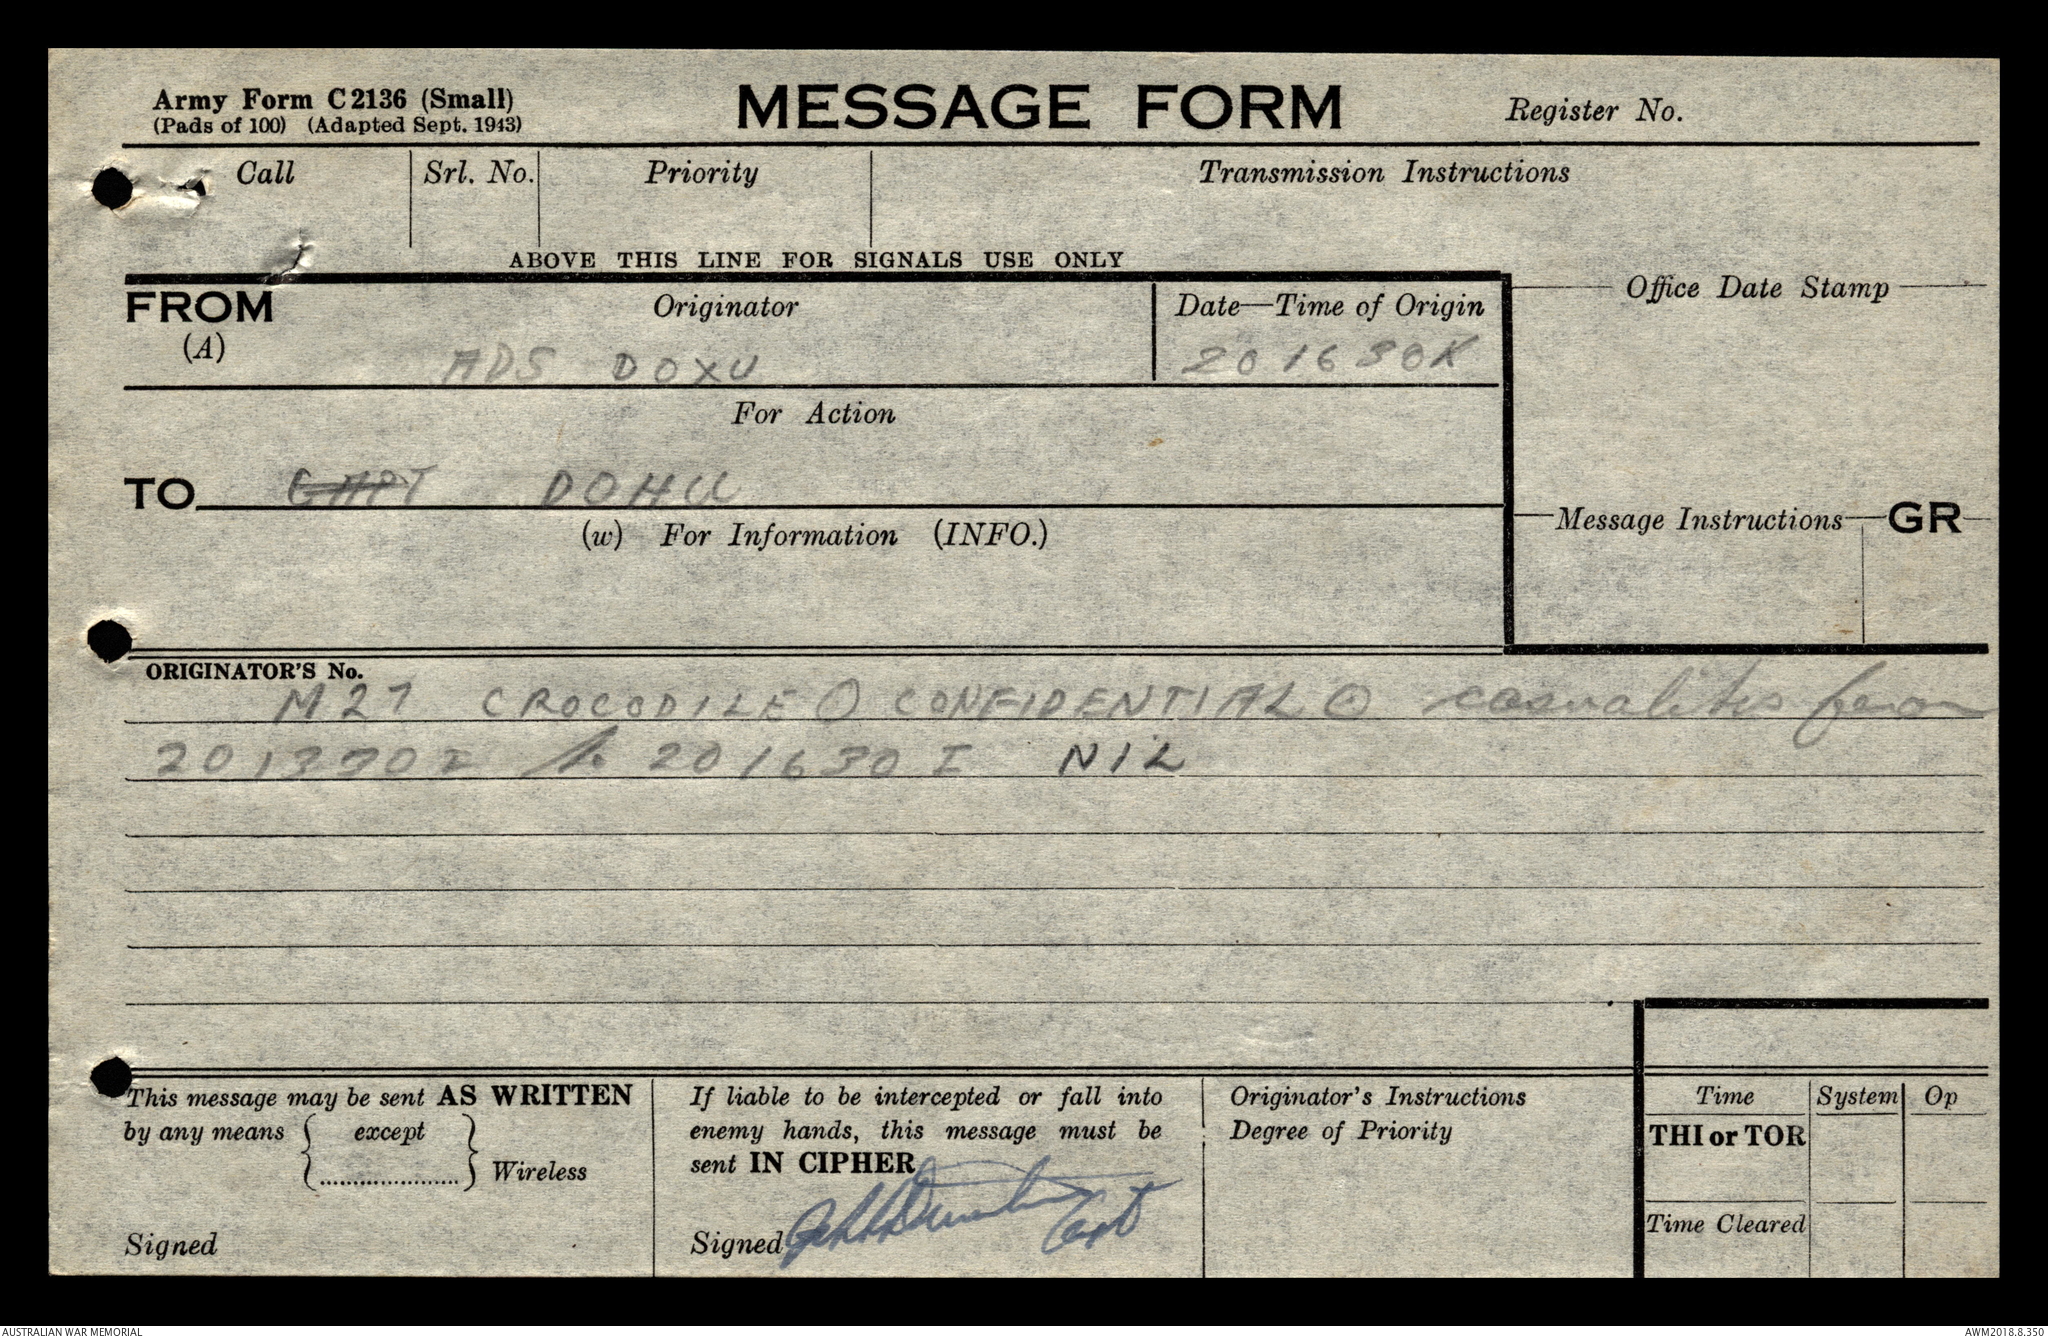 Army Form C2136 (Small)
(Pads of 100) (Adapted Sept. 1943)
MESSAGE FORM
Register No.
Call
Srl. No.
Priority
Transmission Instructions
ABOVE THIS LINE FOR SIGNALS USE ONLY
FROM
(A)
Originator
ADS DOXU
Date—Time of Origin
201630K
Office Date Stamp
For Action
TO CAPT DOHU
(w) For Information (INFO.)
Message Instructions GR
ORIGINATOR'S No.
M27 CROCODILE ⊙ CONFIDENTIAL ⊙ casualities from
201330I to 201630I NIL
This message may be sent AS WRITTEN
by any means { except } Wireless
Signed
If liable to be intercepted or fall into
enemy hands, this message must be
sent IN CIPHER
Signed Capt
Originator's Instructions
Degree of Priority
Time System Op
THI or TOR
Time Cleared
AUSTRALIAN WAR MEMORIAL
AWM2018.8.350